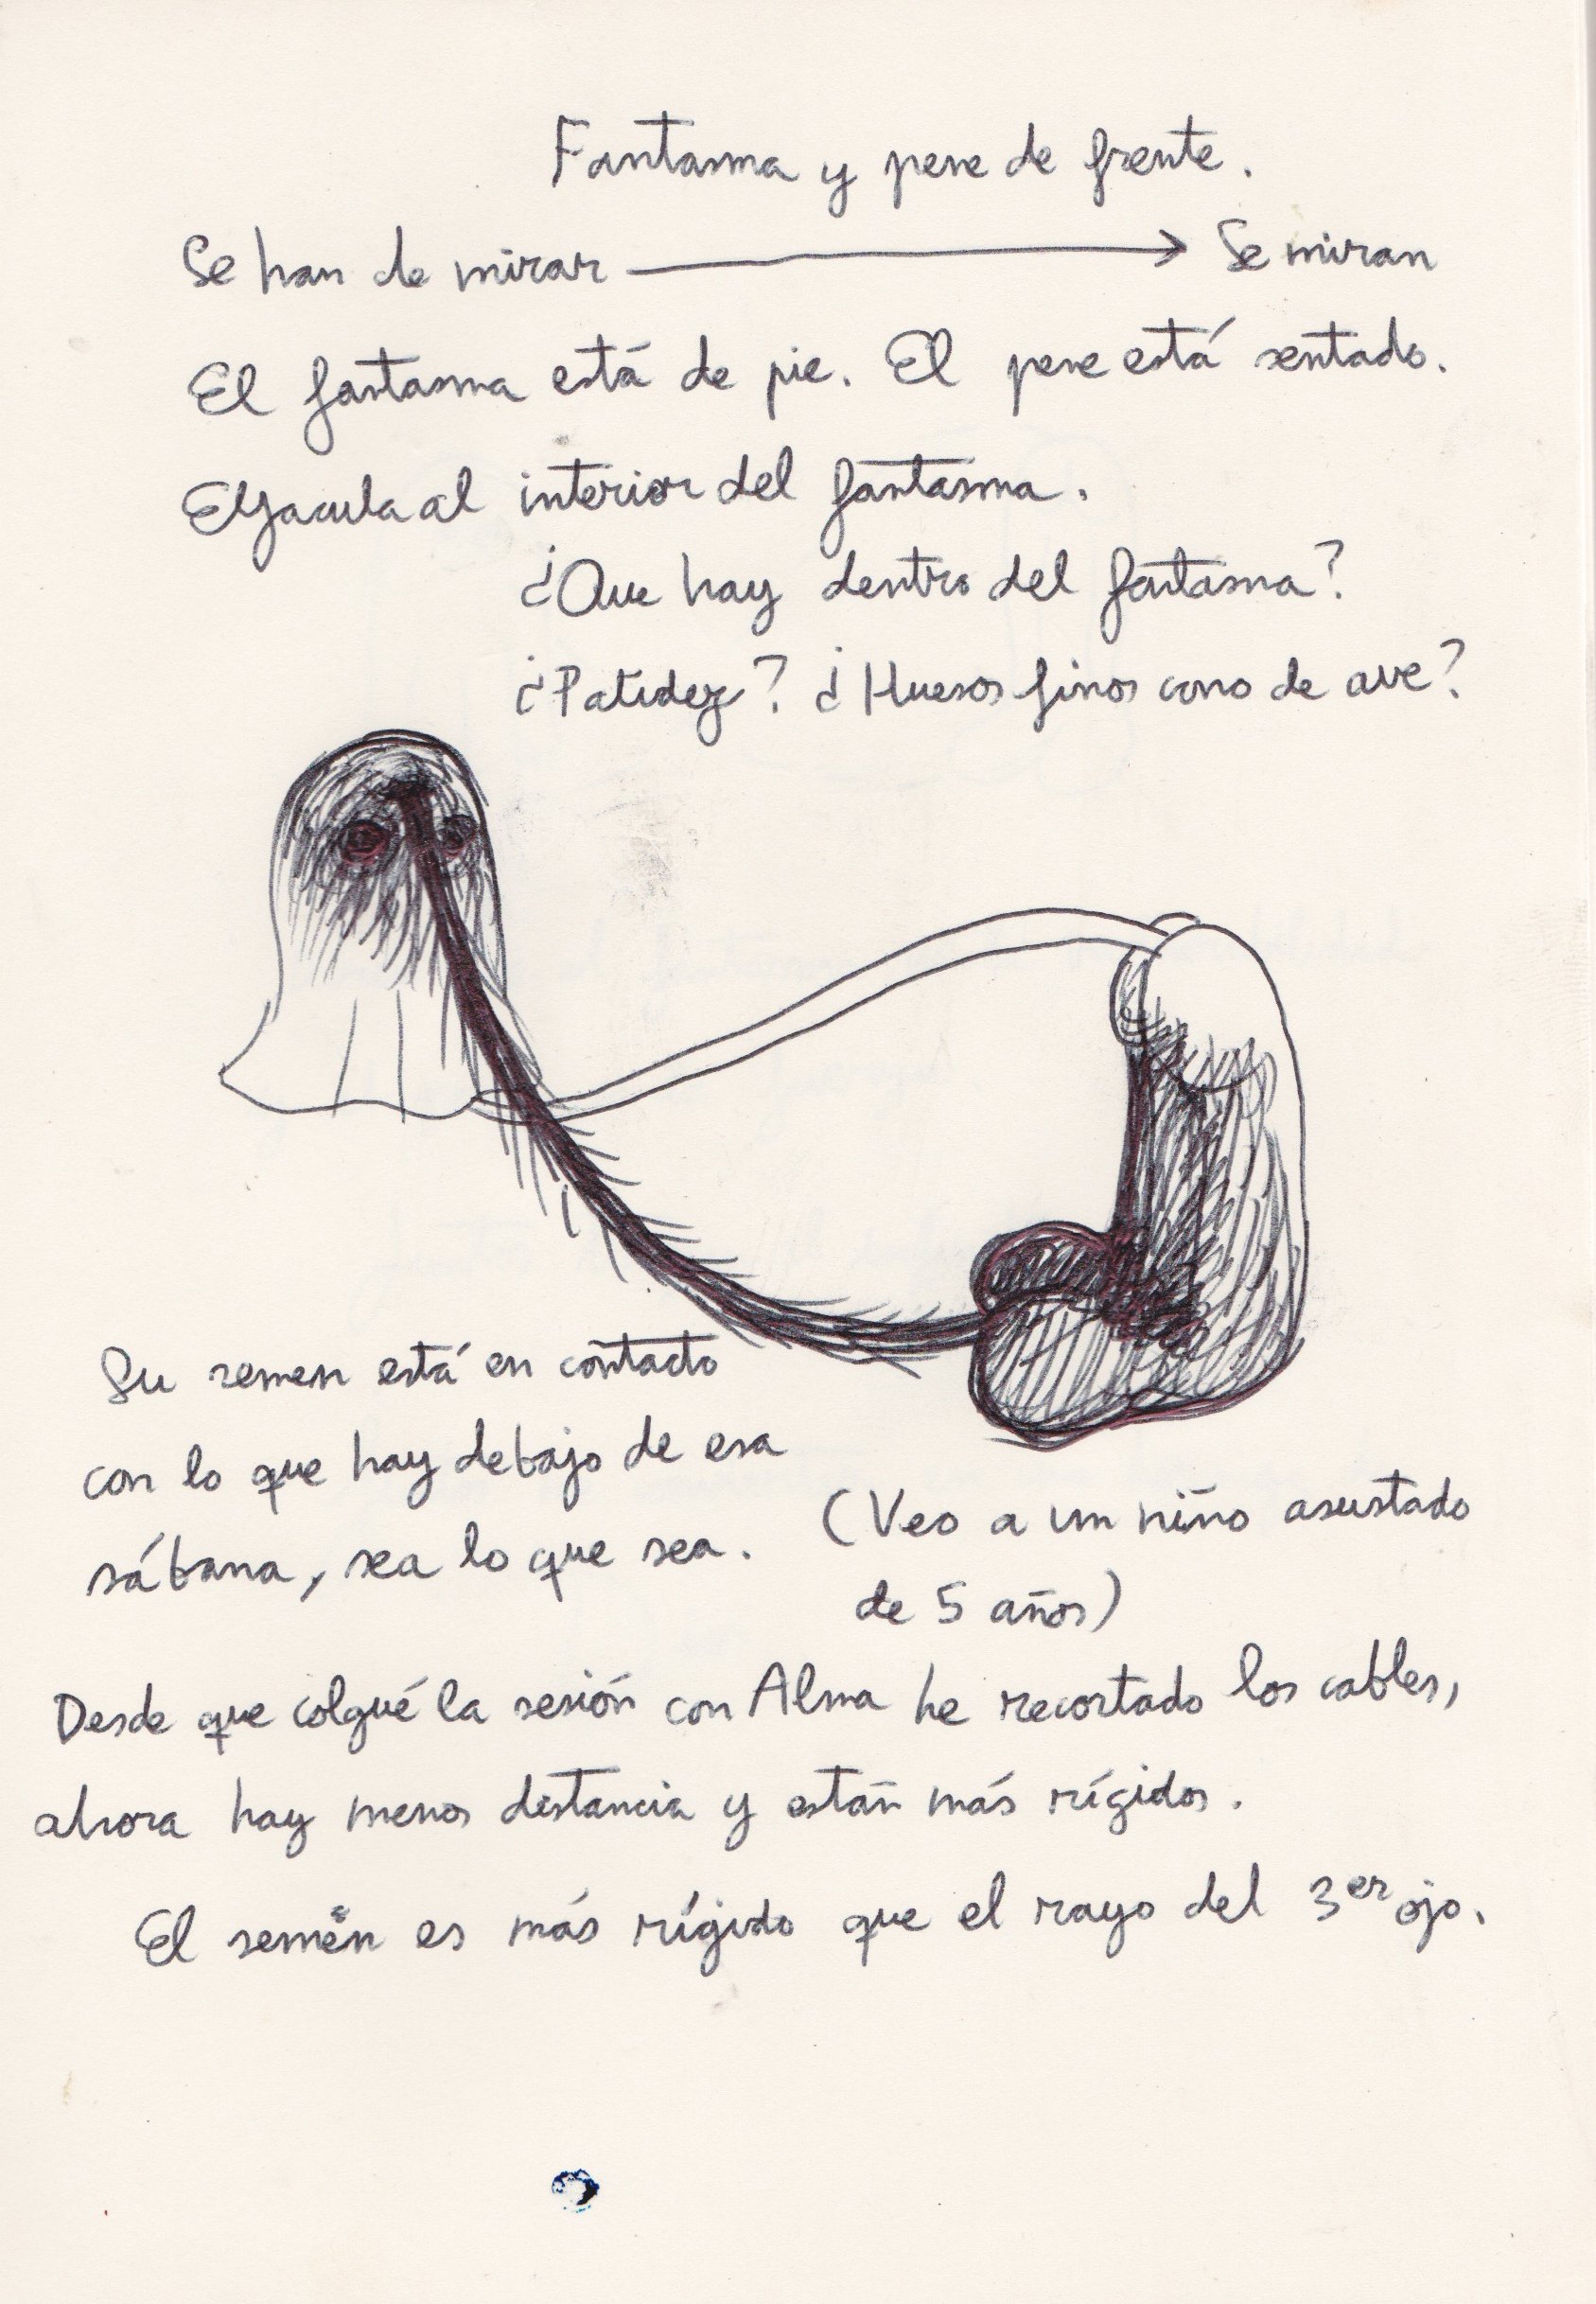 Fantasma y pene de frente.
Se han de mirar → Se miran
El fantasma está de pie. El pene está sentado.
Elyacula al interior del fantasma.
¿Que hay dentro del fantasma?
¿Patidez? ¿Huesos finos como de ave?
Su semen está en contacto
con lo que hay debajo de esa
sábana, sea lo que sea.
(Veo a un niño asustado
de 5 años)
Desde que colgué la sesión con Alma he recortado los cables,
ahora hay menos distancia y están más rígidos.
El semen es más rígido que el rayo del 3er ojo.